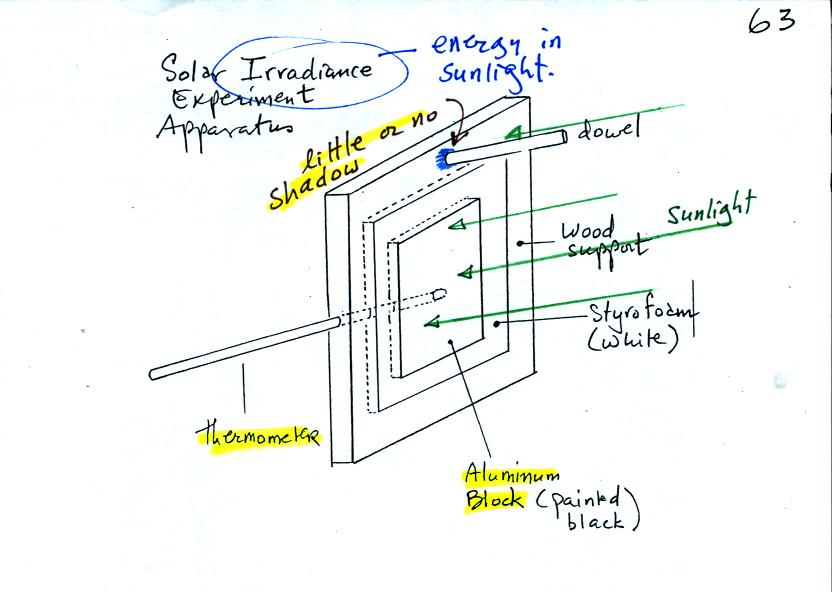 63
Solar Irradiance
Experiment
Apparatus
energy in
sunlight.
little or no
shadow
dowel
Sunlight
Wood
support
Styrofoam
(white)
thermometer
Aluminum
Block (painted
black)